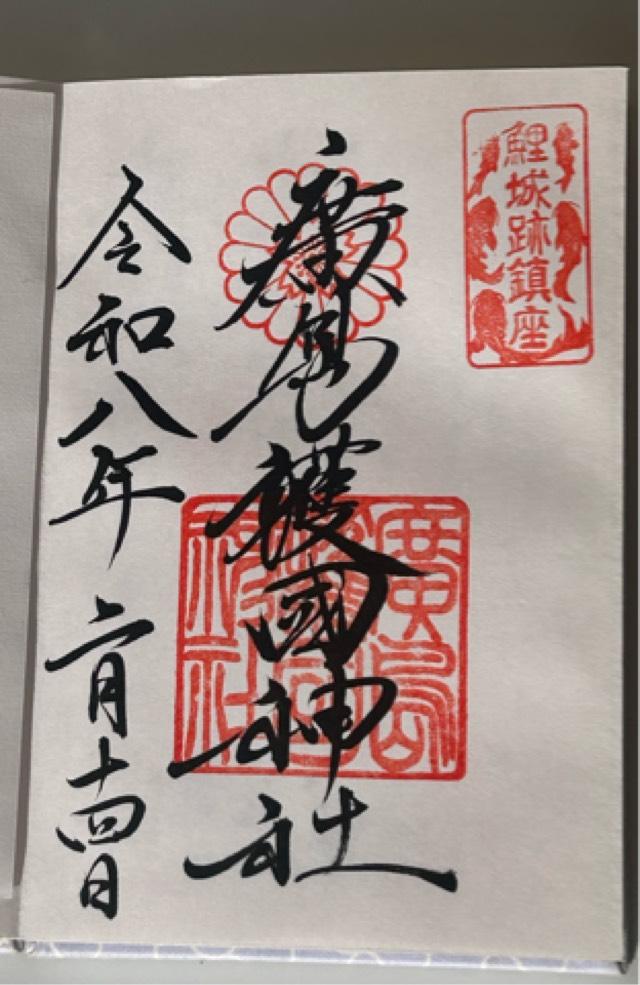 鯉城跡鎮座
廣島護國神社
廣島護國神社
令和八年二月十四日